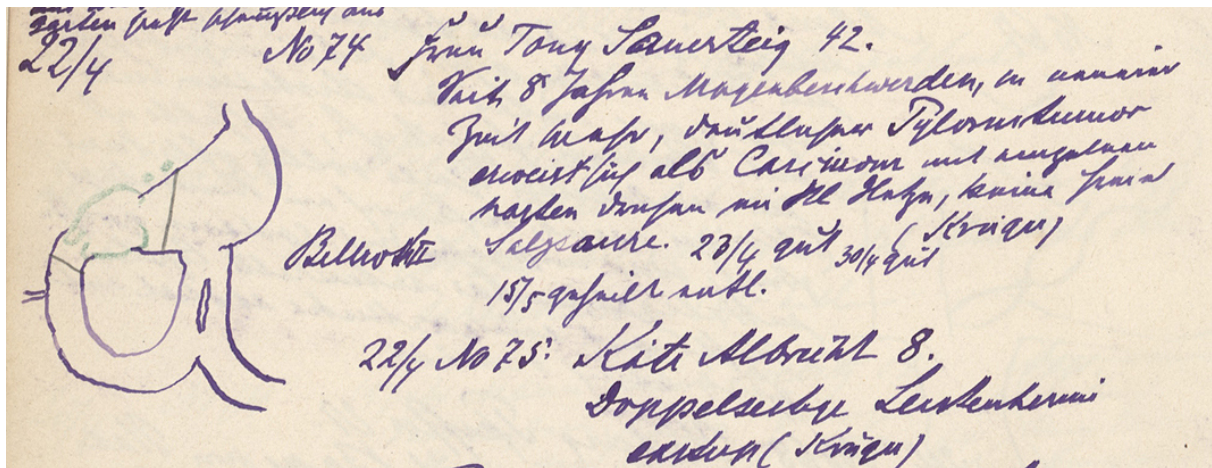 22/4 No 74 Frau Tony Sauersteig 42.
Seit 8 Jahren Magenbeschwerden, in neuerer
Zeit mehr, deutlicher Pylorustumor
erweist sich als Carcinom mit einzelnen
harten Drüsen im Kl Netz, keine freie
Billroth II Salzsäure. 23/4 gut 30/4 gut (Krüger)
15/5 geheilt entl.
22/4 No 75. Käte Albrecht 8.
Doppelseitige Leistenhernie
(Krüger)